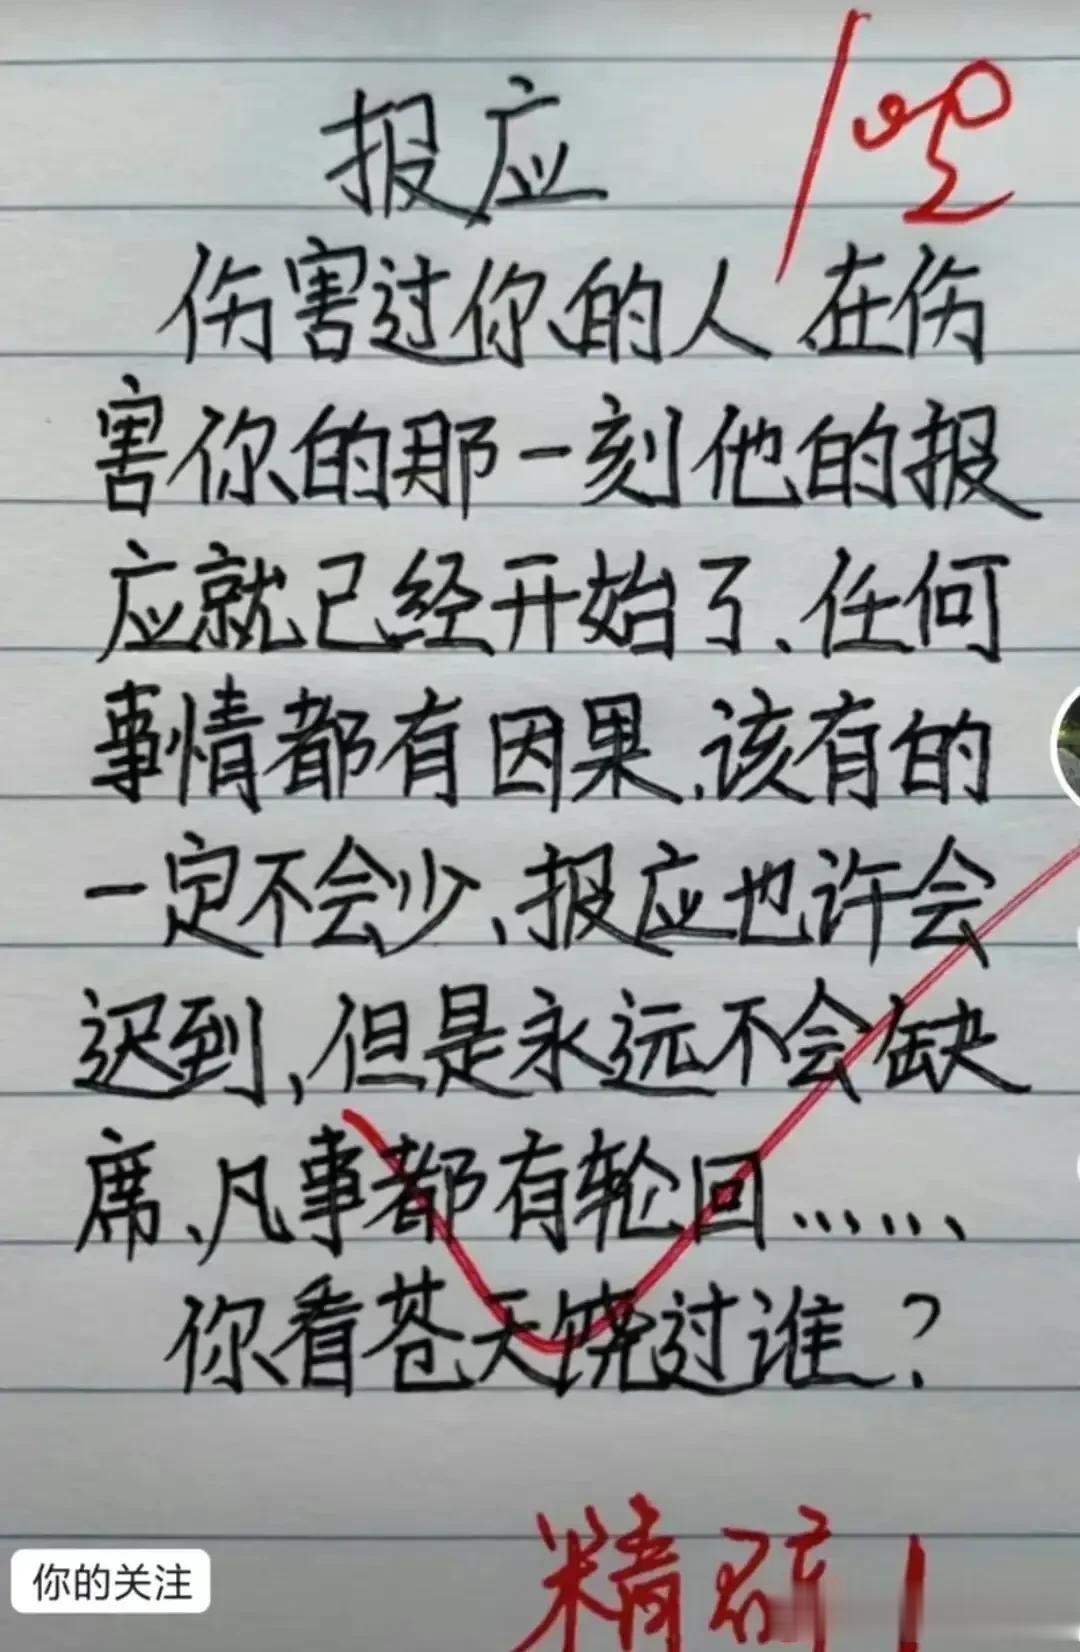 报应
伤害过你的人在伤
害你的那一刻他的报
应就已经开始了、任何
事情都有因果、该有的
一定不会少、报应也许会
迟到,但是永远不会缺
席、凡事都有轮回……
你看苍天饶过谁?
你的关注